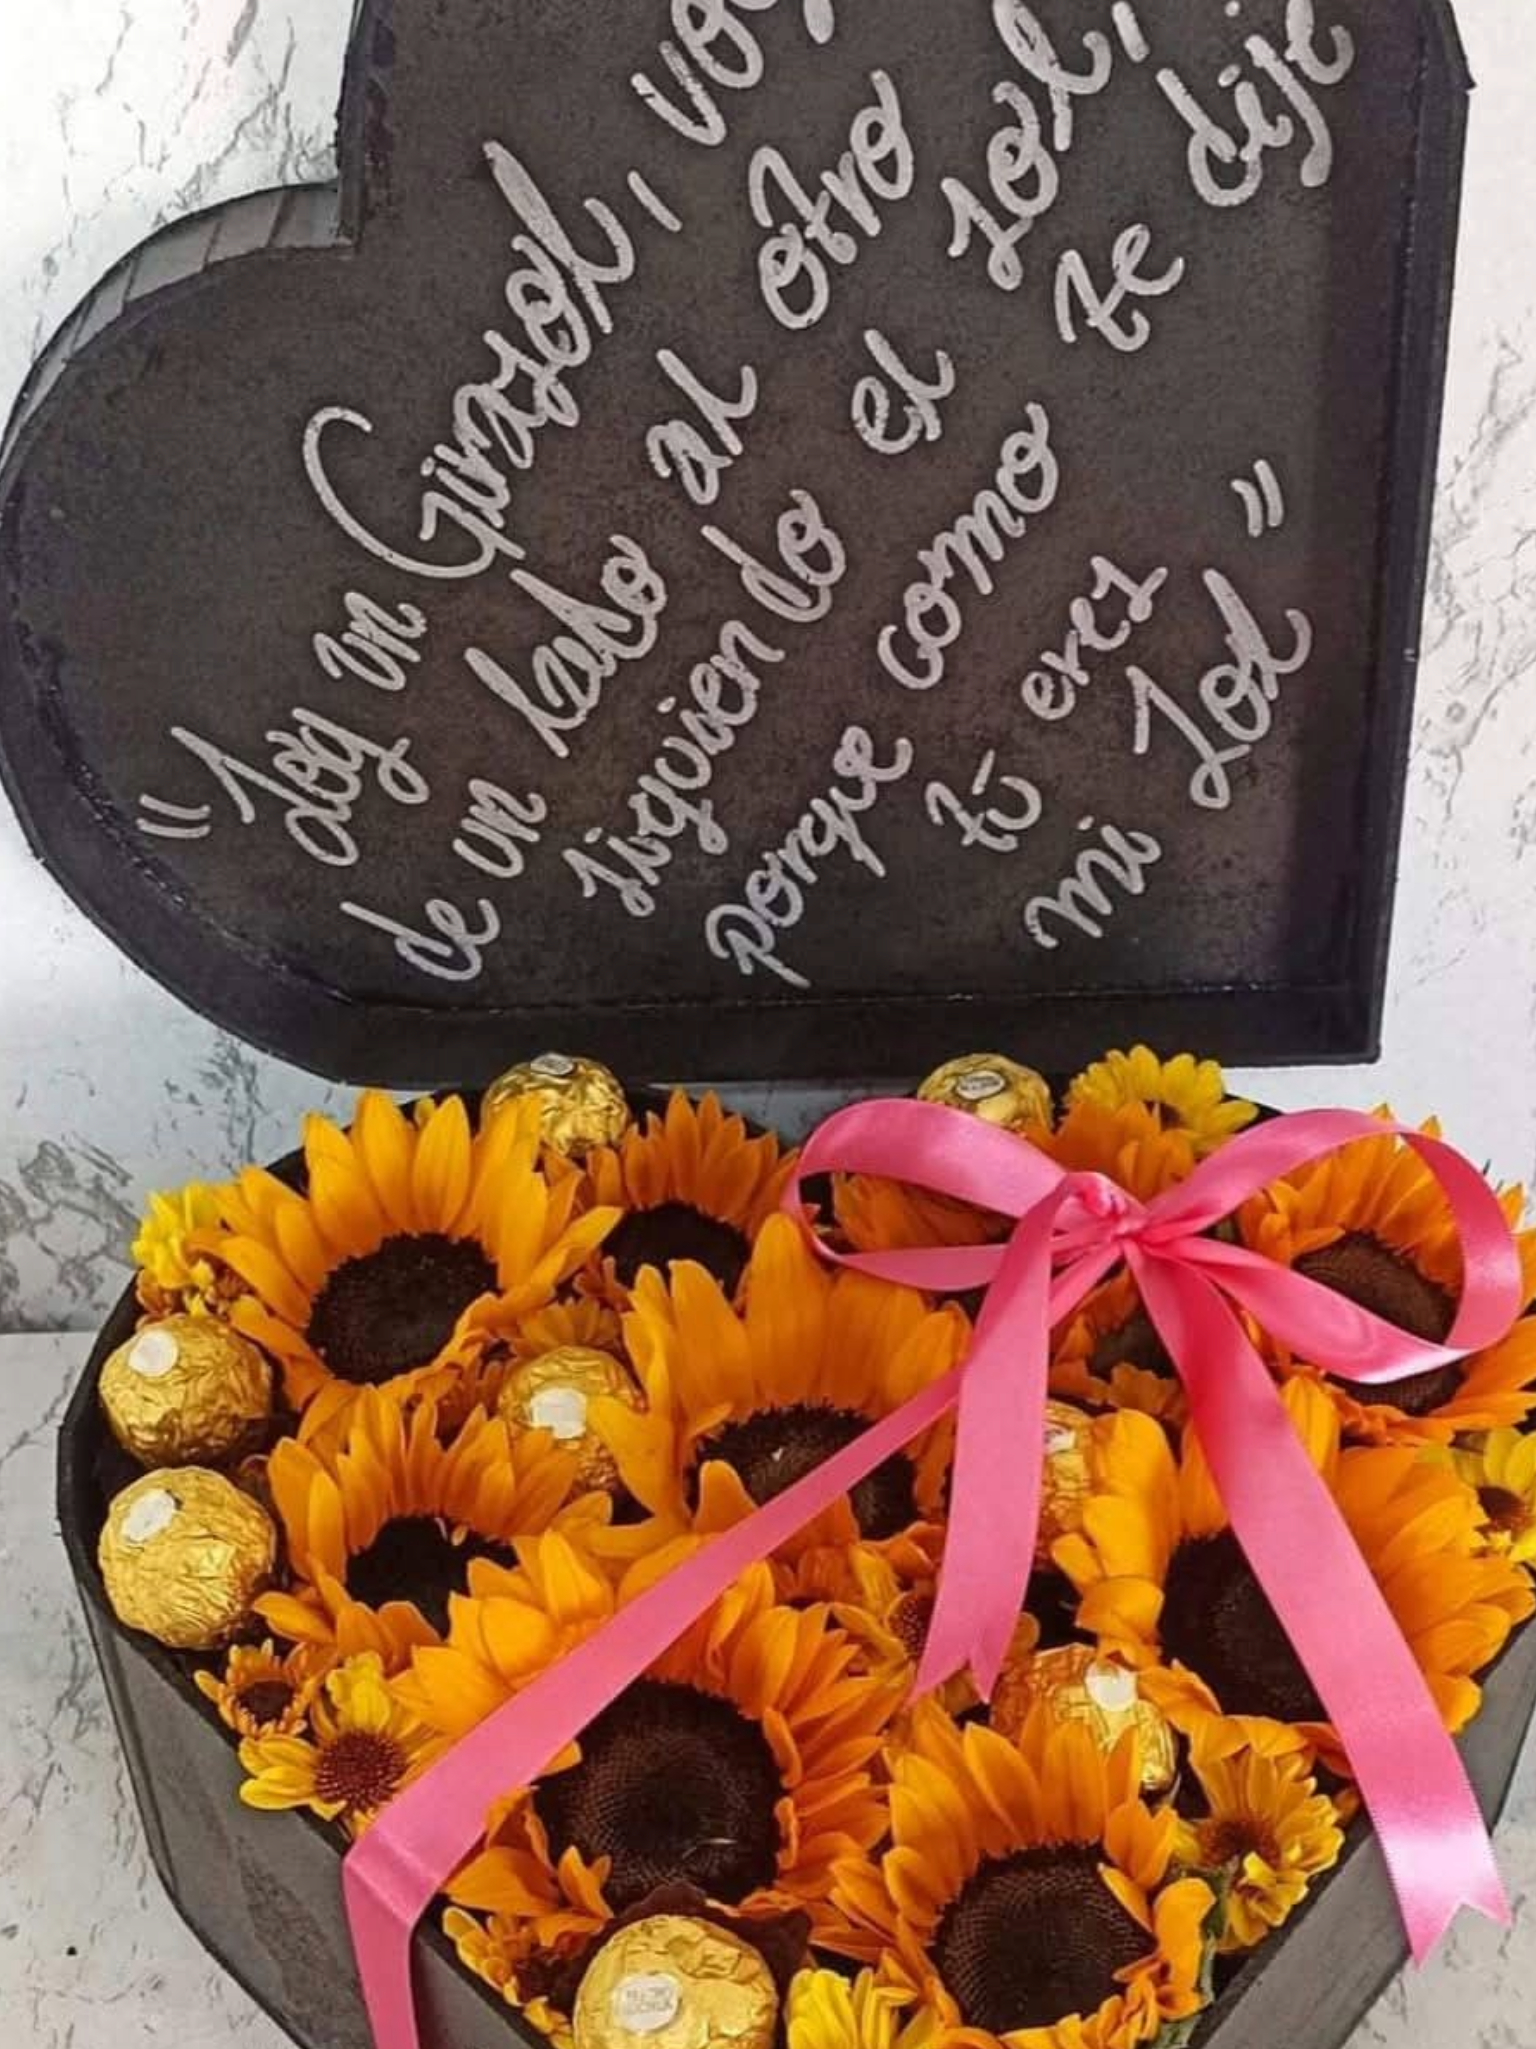 "Soy un Girasol, voy
de un lado al otro
siguiendo el sol,
porque como te dije
tú eres
mi Sol"